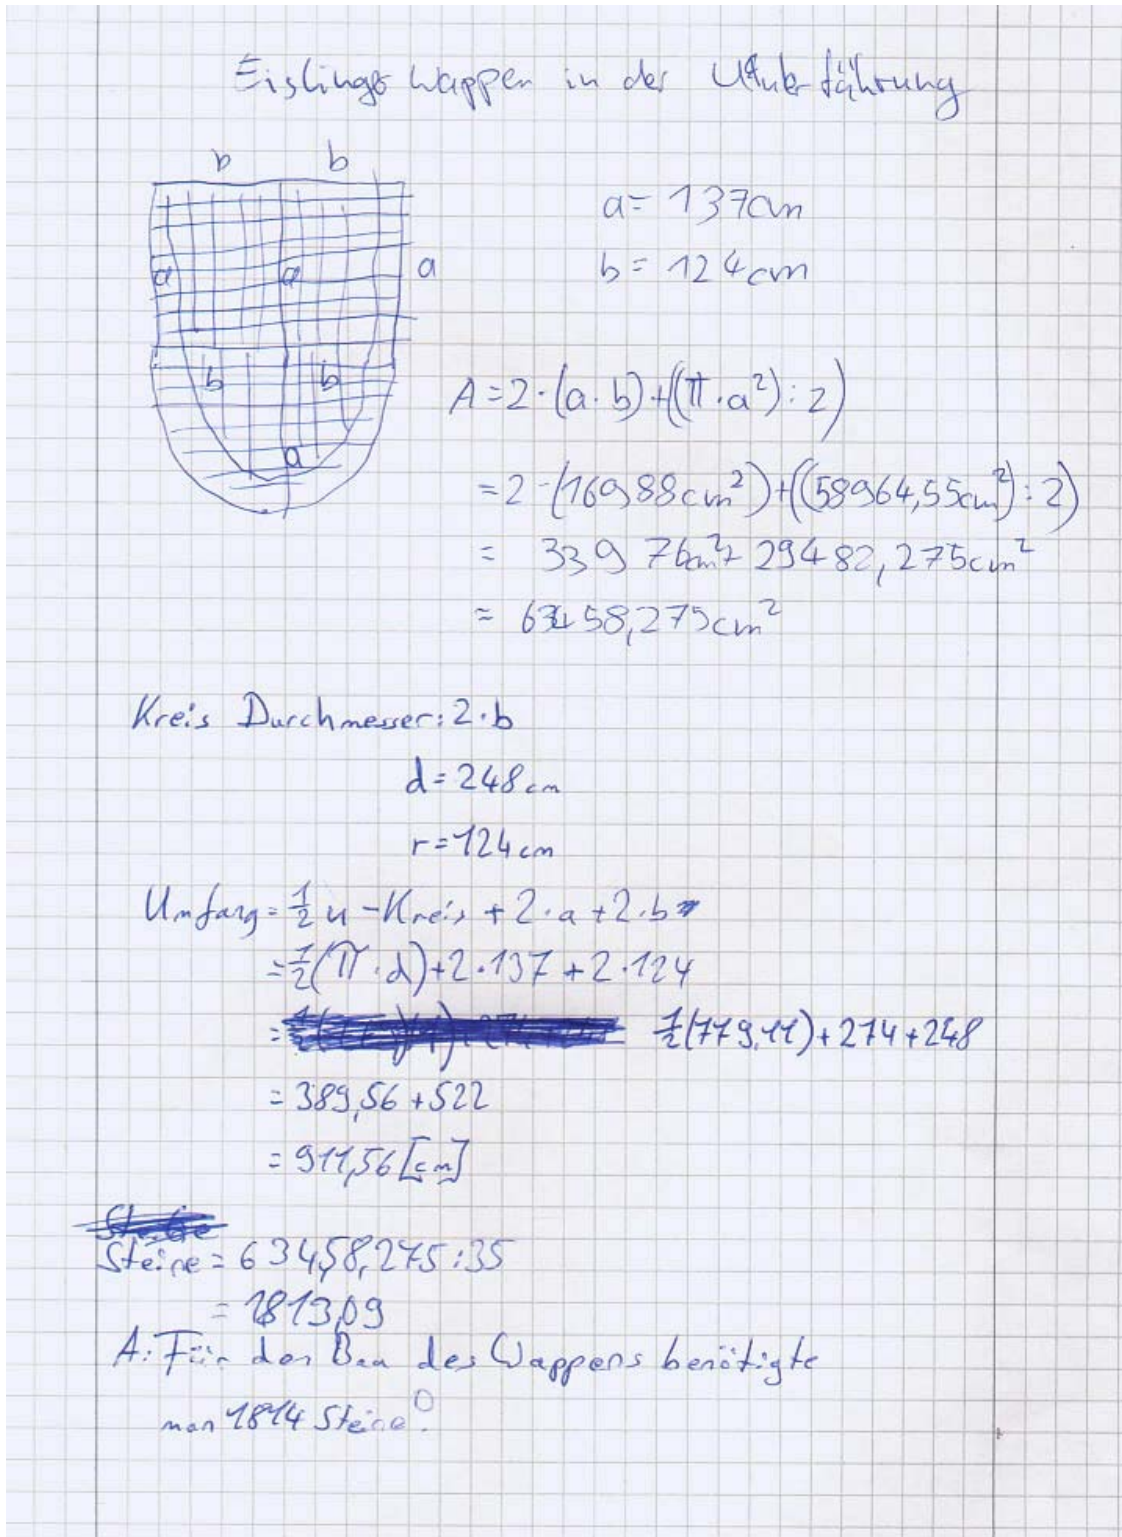 Eislinger Wappen in der Unterführung
b b
a = 137cm
a a a
b = 124cm
b b
A = 2·(a·b)+((π·a²):2)
a
= 2·(16988cm²)+((58964,55cm²):2)
= 33976cm²+ 29482,275cm²
= 63458,275cm²
Kreis Durchmesser: 2·b
d = 248cm
r = 124cm
Umfang = 1/2 u - Kreis + 2·a + 2·b
= 1/2(π·d)+2·137+2·124
= 1/2(779,11)+274+248
= 389,56+522
= 911,56[cm]
Steine = 63458,275:35
= 1813,09
A: Für den Bau des Wappens benötigte
man 1814 Steine!